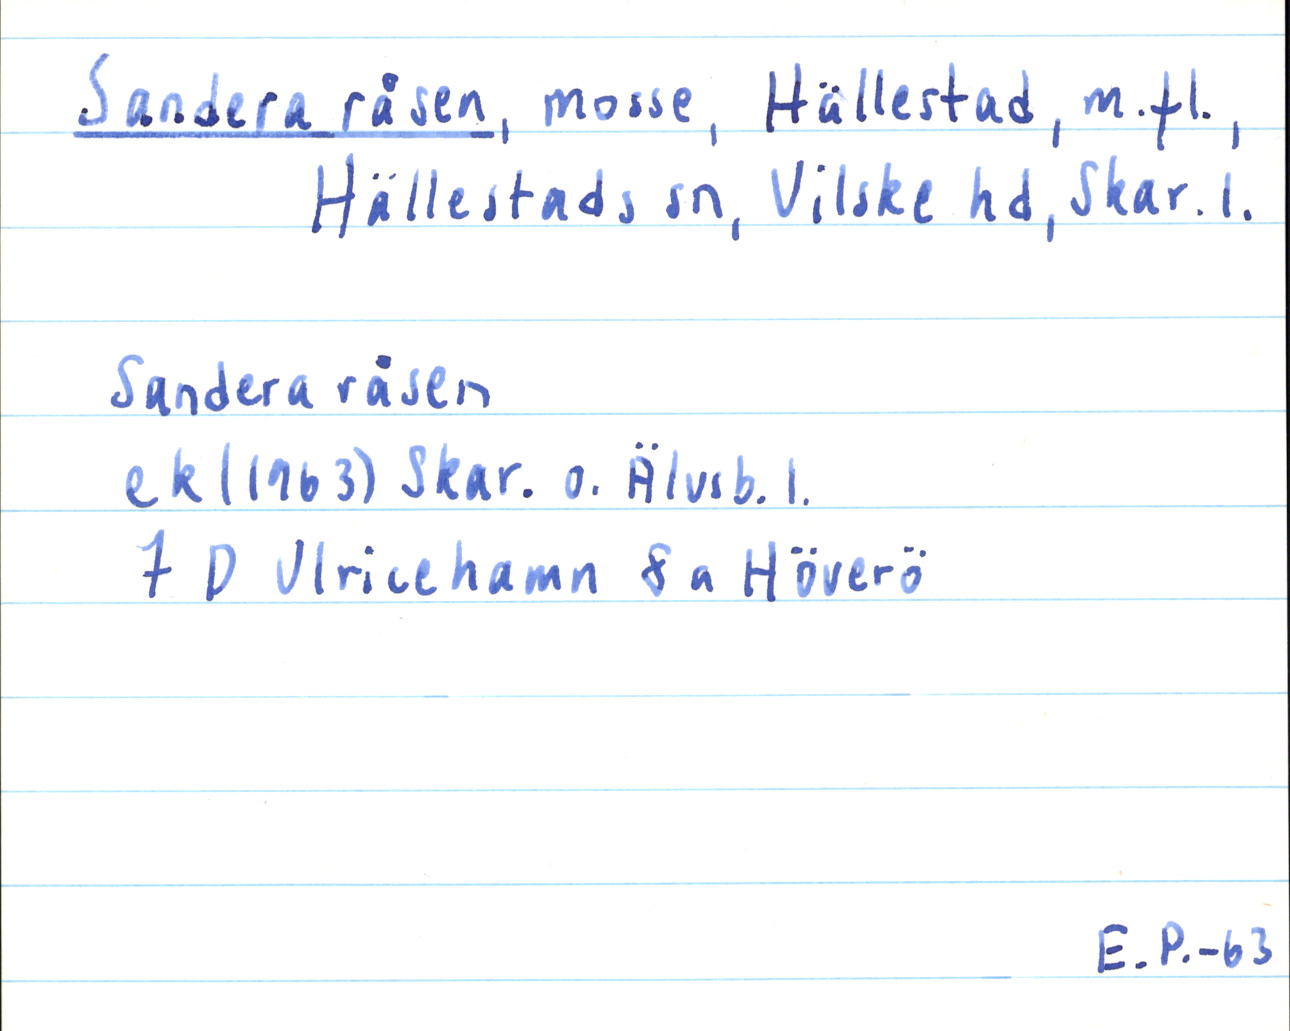 Sandera råsen, mosse, Hällestad, m.fl.,
Hällestads sn, Vilske hd, Skar. l.
Sandera råsen
ek (1963) Skar. o. Älvsb. l.
7 D Ulricehamn 8 a Höverö
E.P.-63